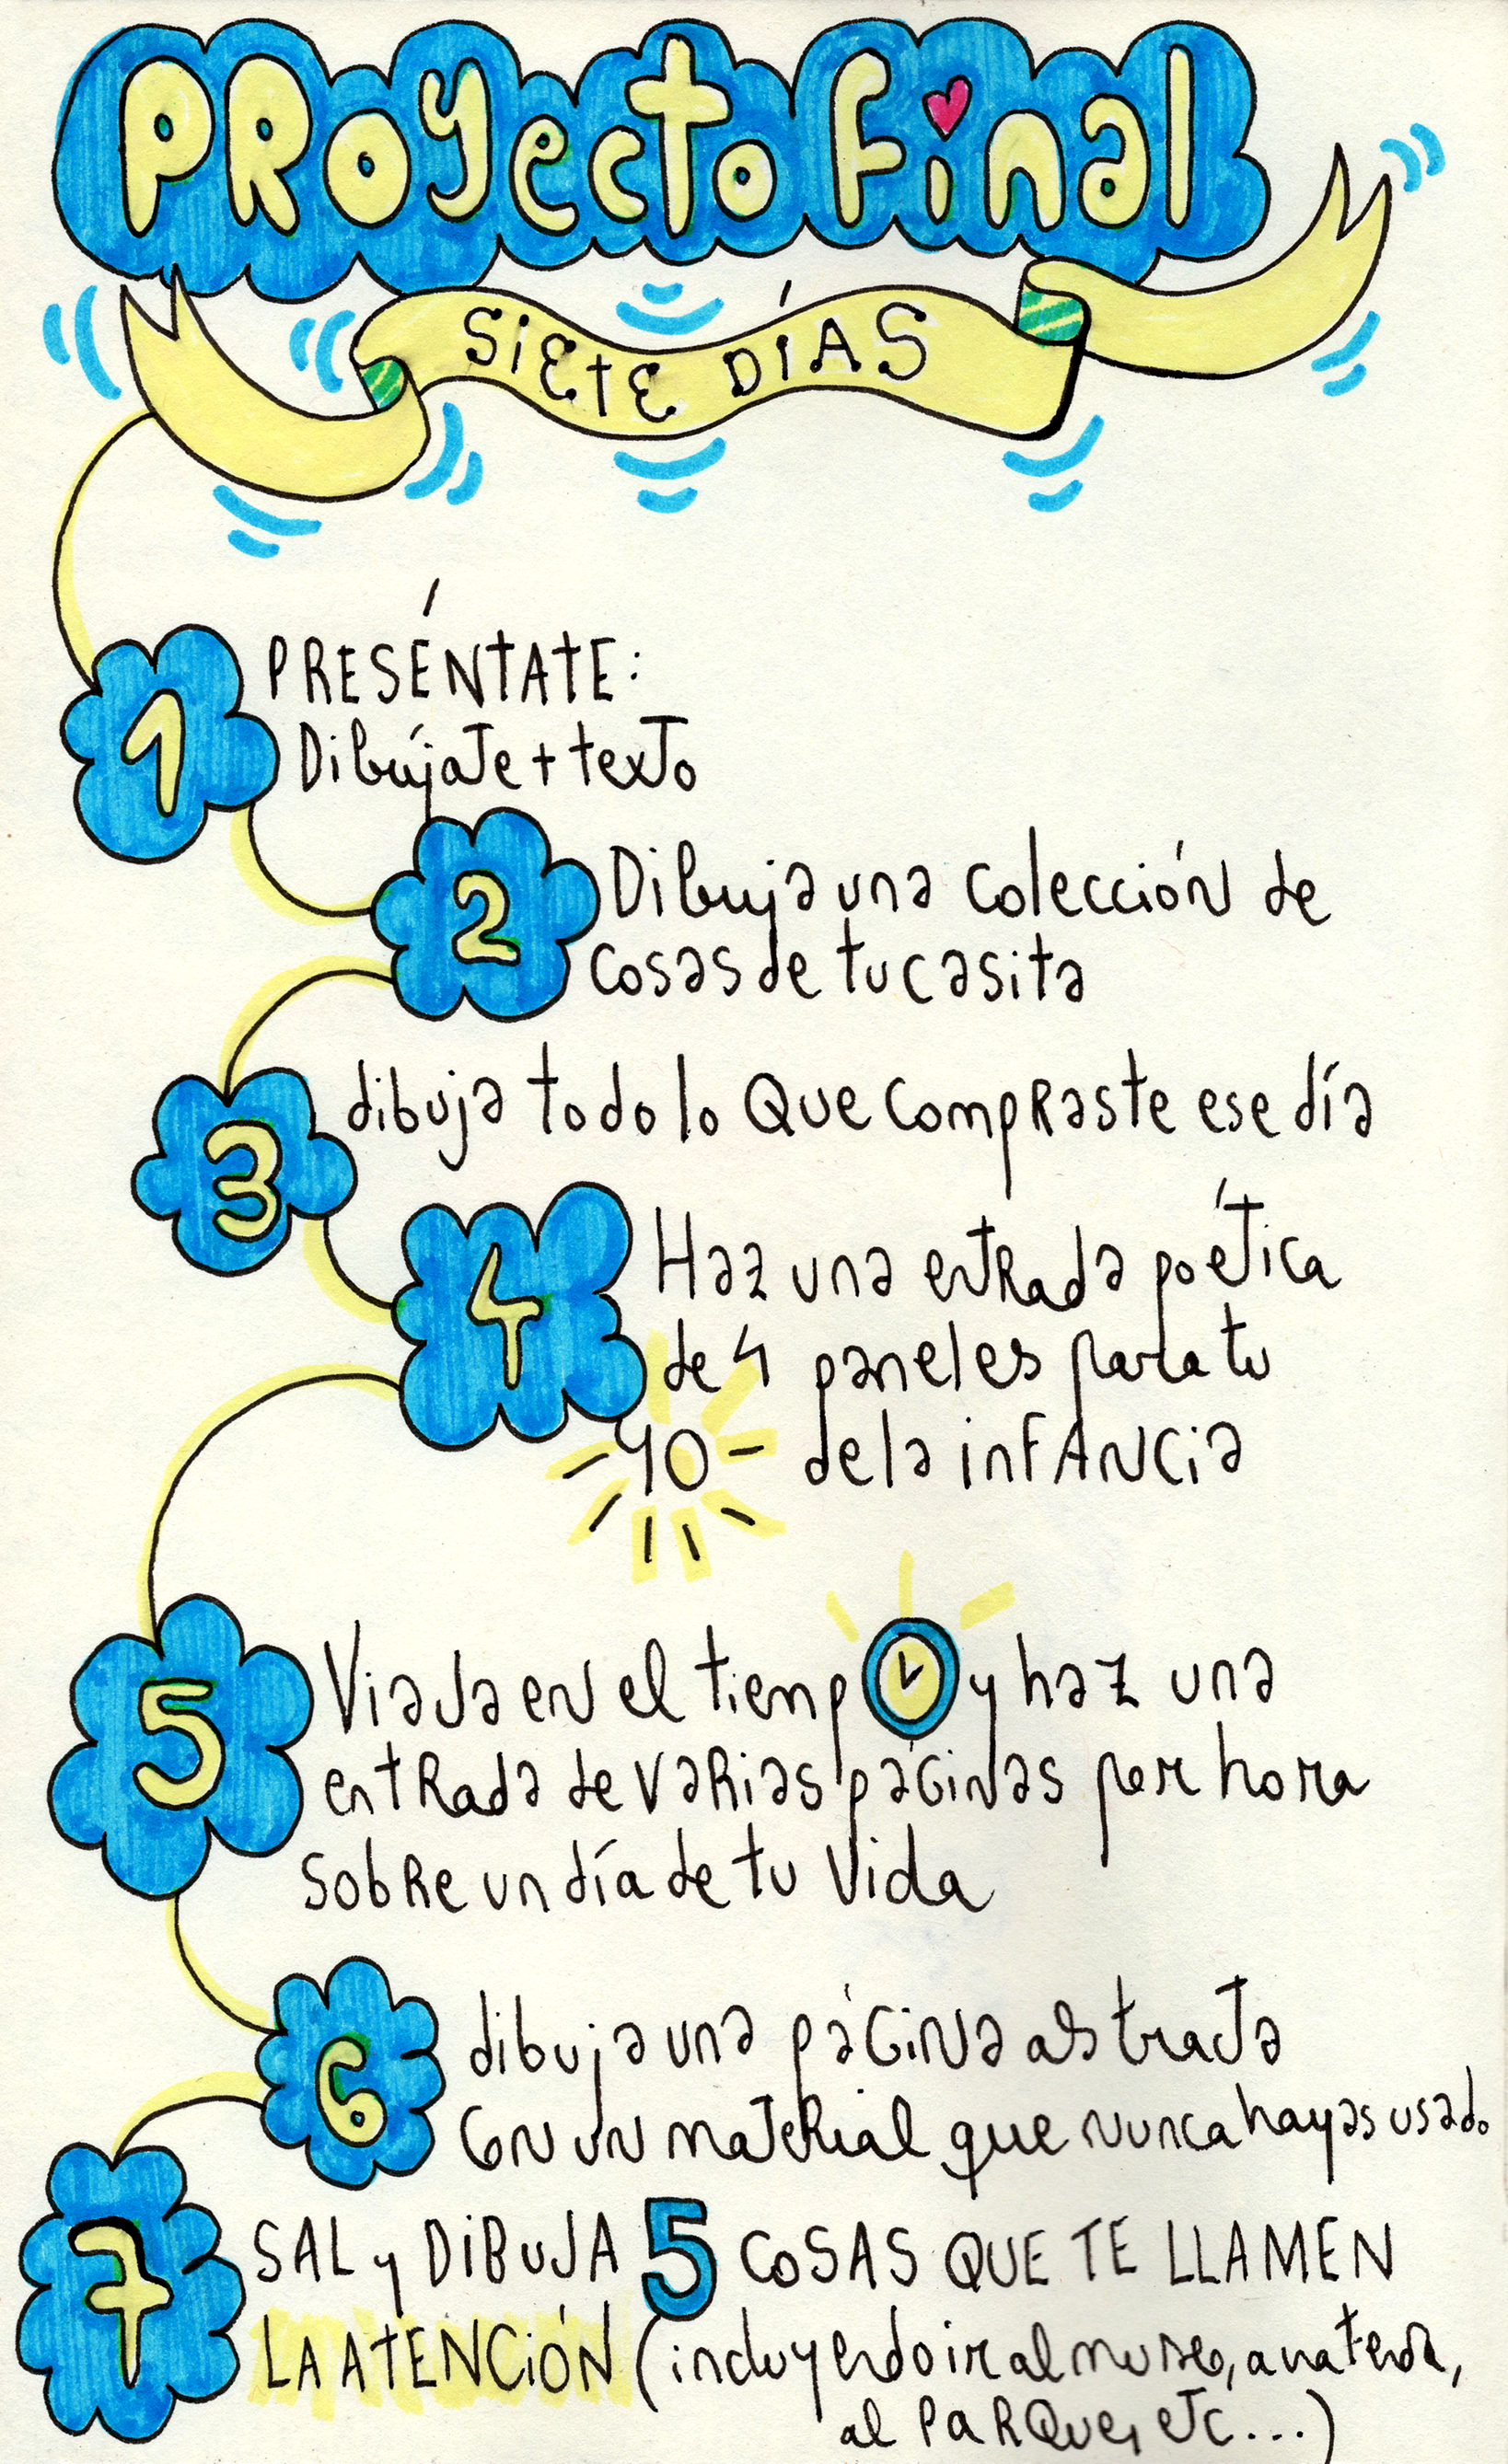 PROyecto Final
SiEtE DÍAS
1
PRESÉNTATE:
Dibújate + texto
2
Dibuja una colección de
cosas de tu casita
3
dibuja todo lo Que compraste ese día
4
Haz una entrada poética
de 4 paneles para tu
yo de la infancia
5
Viaja en el tiempo y haz una
entrada de varias páginas por hora
sobre un día de tu vida
6
dibuja una página abstracta
con un material que nunca hayas usado
7
SAL y DIBUJA 5 COSAS QUE TE LLAMEN
LA ATENCIÓN (incluyendo ir al museo, a una tienda,
al parque, etc...)